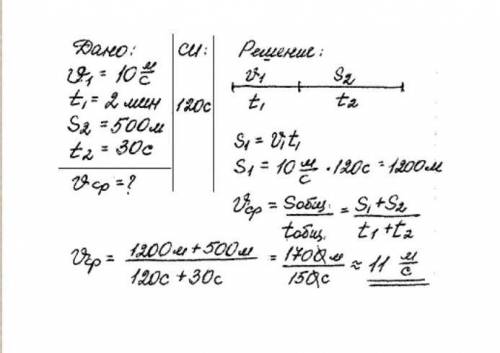 Дано:
υ₁ = 10 м/с
t₁ = 2 мин
S₂ = 500 м
t₂ = 30 с
υср = ?
СИ:
120 с
Решение:
υ₁ S₂
t₁ t₂
S₁ = υ₁t₁
S₁ = 10 м/с · 120 с = 1200 м
υср = Sобщ. / tобщ. = (S₁ + S₂) / (t₁ + t₂)
υср = (1200 м + 500 м) / (120 с + 30 с) = 1700 м / 150 с ≈ 11 м/с